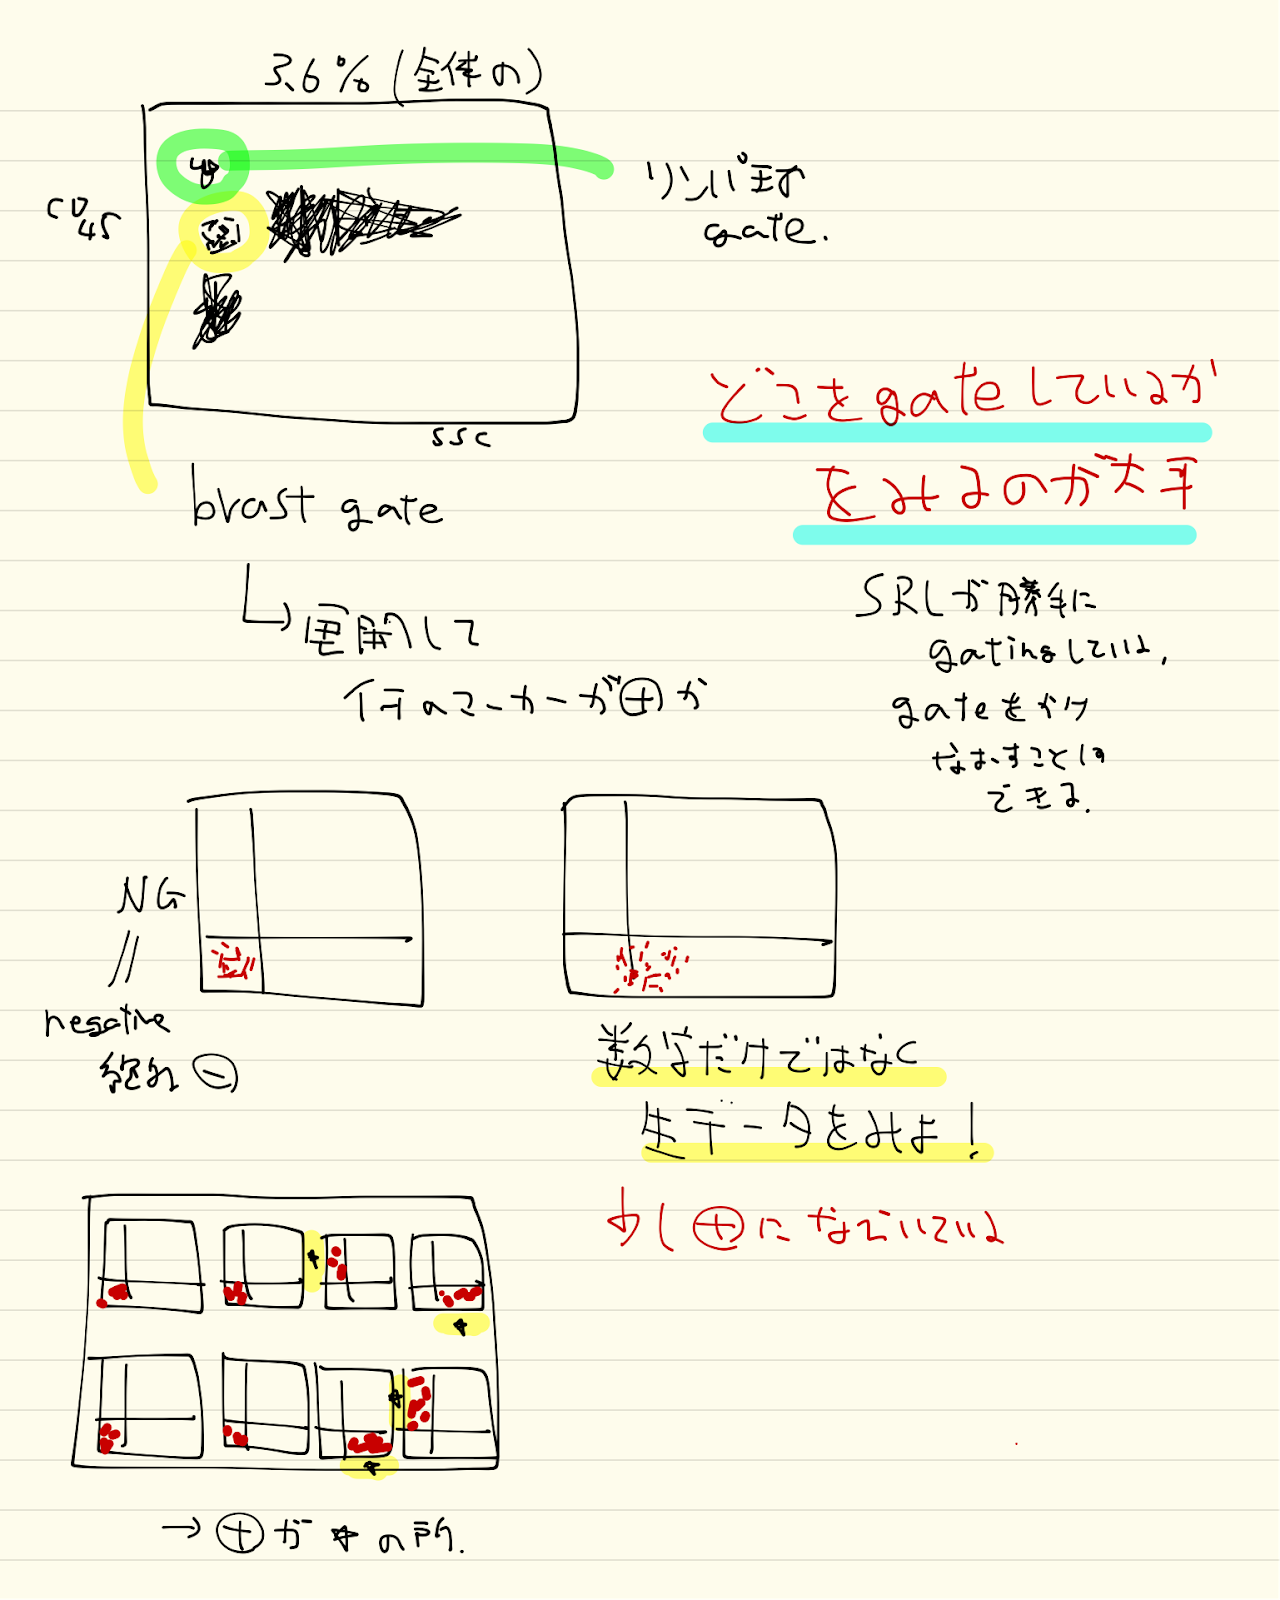 3.6% (全体の)
CD45
リンパ球
gate.
SSC
どこをgateしているか
をみるのが大事
brast gate
→展開して
何のマーカーが⊕か
SRLが勝手に
gatingしている,
gateをかけ
なおすことは
できる.
NG
||
negative
絶対⊖
数字だけではなく
生データをみよ!
少し⊕になっている
→⊕が★の所.